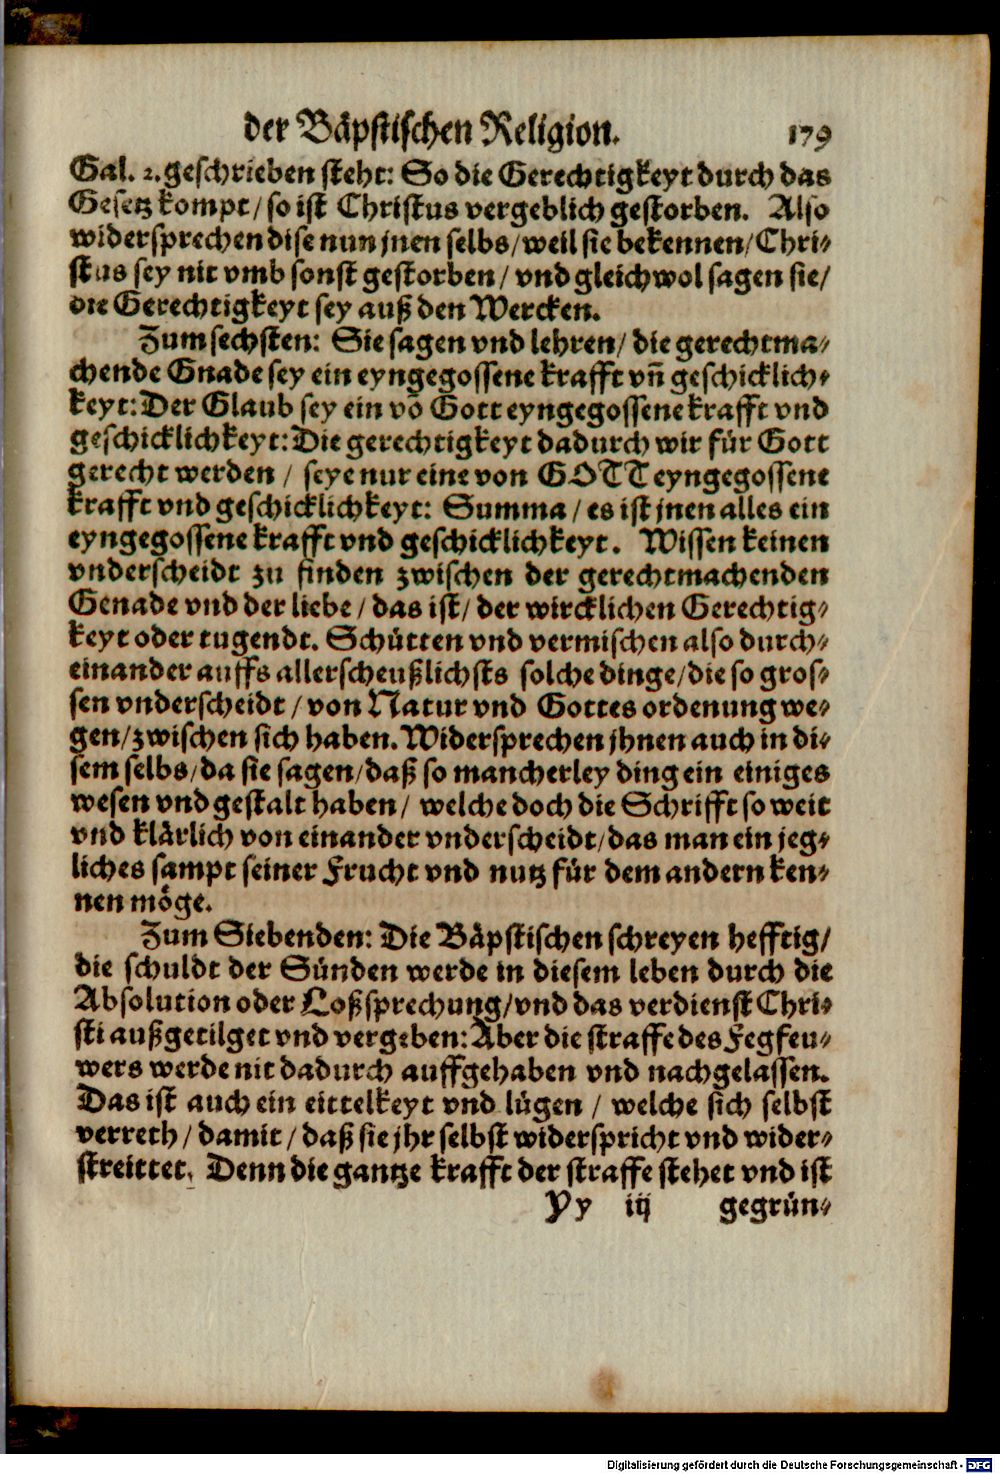 der Bäpstischen Religion. 179
Gal. 2. geschrieben steht: So die Gerechtigkeyt durch das
Gesetz kompt/ so ist Christus vergeblich gestorben. Also
widersprechen dise nun jnen selbs/ weil sie bekennen/ Chri-
stus sey nit vmb sonst gestorben/ vnd gleichwol sagen sie/
die Gerechtigkeyt sey auß den Wercken.
Zum sechsten: Sie sagen vnd lehren/ die gerechtma-
chende Gnade sey ein eyngegossene krafft vñ geschicklich-
keyt: Der Glaub sey ein võ Gott eyngegossene krafft vnd
geschicklichkeyt: Die gerechtigkeyt dadurch wir für Gott
gerecht werden / seye nur eine von GOTT eyngegossene
krafft vnd geschicklichkeyt: Summa / es ist jnen alles ein
eyngegossene krafft vnd geschicklichkeyt. Wissen keinen
vnderscheidt zu finden zwischen der gerechtmachenden
Genade vnd der liebe / das ist/ der wircklichen Gerechtig-
keyt oder tugendt. Schütten vnd vermischen also durch-
einander auffs allerscheußlichsts solche dinge/ die so gros-
sen vnderscheidt / von Natur vnd Gottes ordenung we-
gen/ zwischen sich haben. Widersprechen jhnen auch in di-
sem selbs/ da sie sagen/ daß so mancherley ding ein einiges
wesen vnd gestalt haben/ welche doch die Schrifft so weit
vnd klärlich von einander vnderscheidt/ das man ein jeg-
liches sampt seiner Frucht vnd nutz für dem andern ken-
nen möge.
Zum Siebenden: Die Bäpstischen schreyen hefftig/
die schuldt der Sünden werde in diesem leben durch die
Absolution oder Loßsprechung/ vnd das verdienst Chri-
sti außgetilget vnd vergeben: Aber die straffe des Fegfeu-
wers werde nit dadurch auffgehaben vnd nachgelassen.
Das ist auch ein eittelkeyt vnd lügen / welche sich selbst
verreth / damit / daß sie jhr selbst widerspricht vnd wider-
streittet. Denn die gantze krafft der straffe stehet vnd ist
Yy iij gegrün-
Digitalisierung gefördert durch die Deutsche Forschungsgemeinschaft - DFG